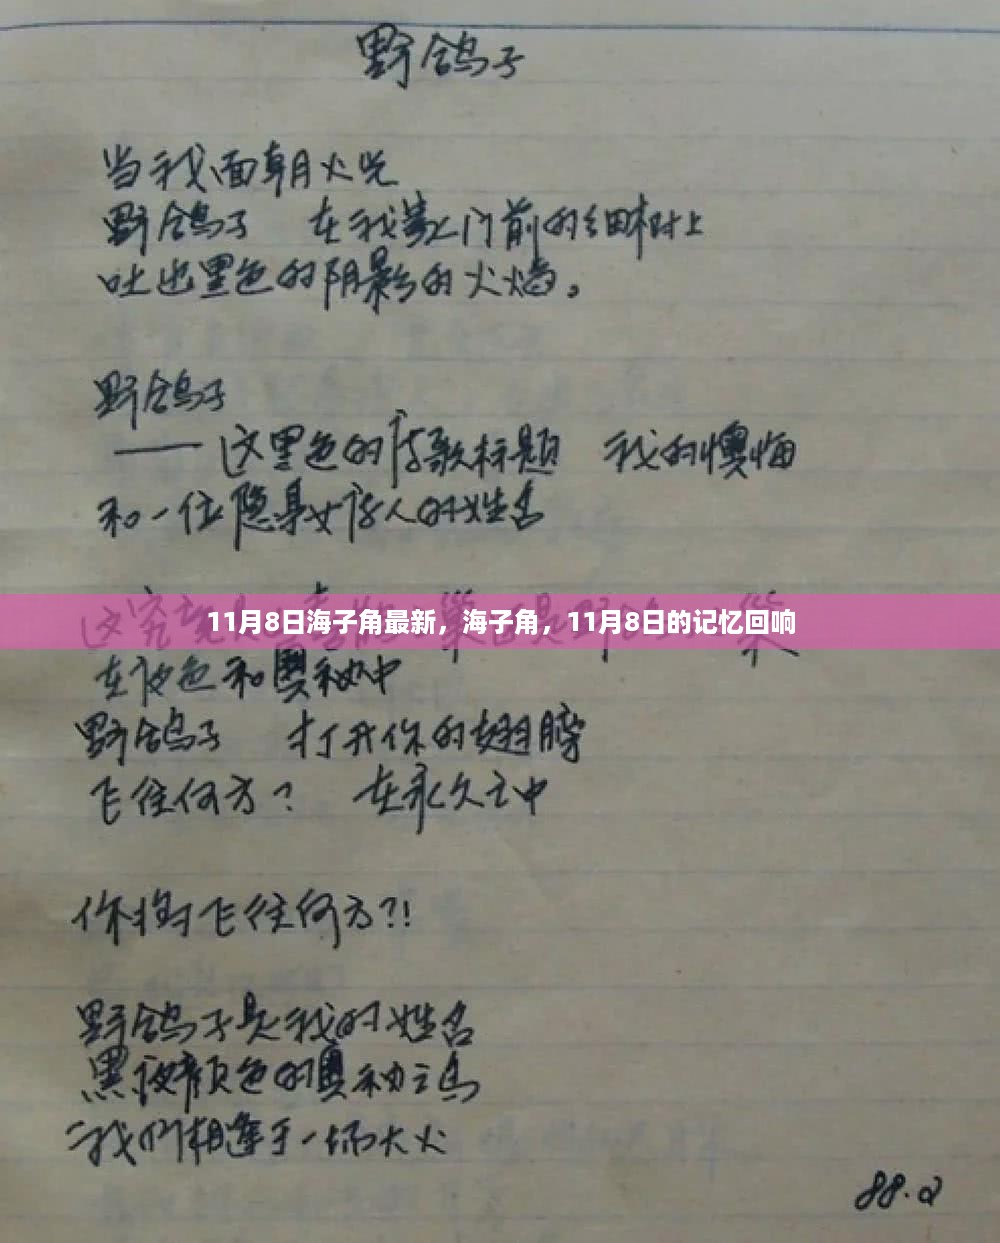 野鸽子
当我面朝火光
野鸽子 在我家门前的细树上
吐出黑色的阴影的火焰。
野鸽子
——这黑色的诗歌标题 我的懊悔
和一位隐身女诗人的姓名
这究竟
11月8日海子角最新，海子角，11月8日的记忆回响
在夜色和奥秘中
野鸽子 打开你的翅膀
飞往何方? 在永久之中
你将飞往何方?!
野鸽子是我的姓名
黑夜颜色的奥秘之鸟
我们相逢于一场大火
88.2